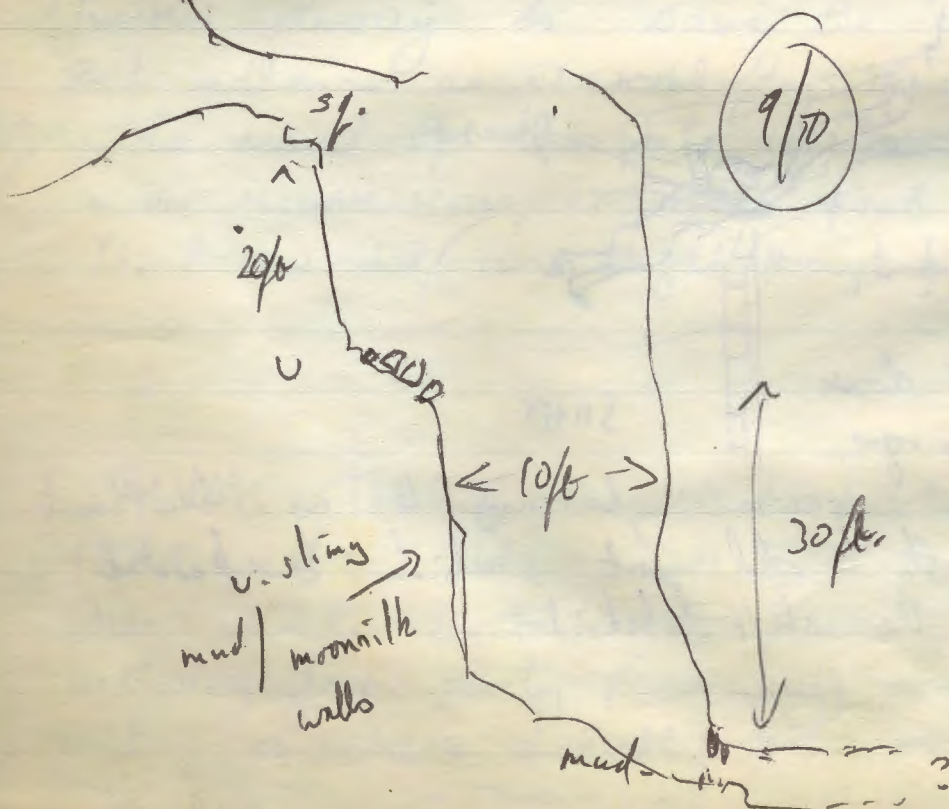 9/10
20ft
10ft
30ft.
v. slimy
mud / moonmilk
walls
mud
?